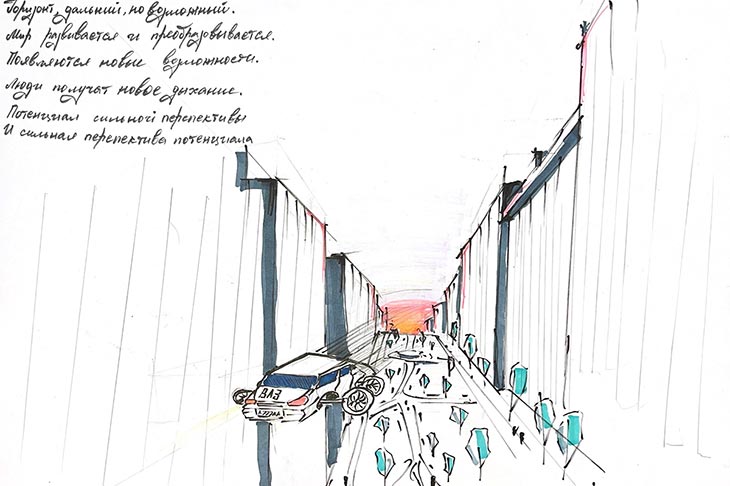 Горизонт, дальний, но возможный.
Мир развивается и преобразовывается.
Появляются новые возможности.
Люди получат новое дыхание.
Потенциал сильной перспективы
И сильная перспектива потенциала
ВАЗ